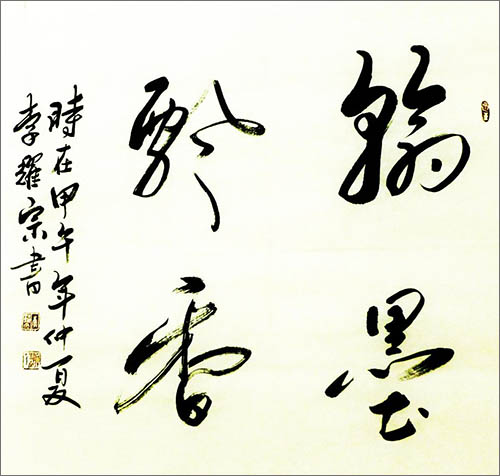 翰墨
飘香
時在甲午年仲夏
李耀宗書